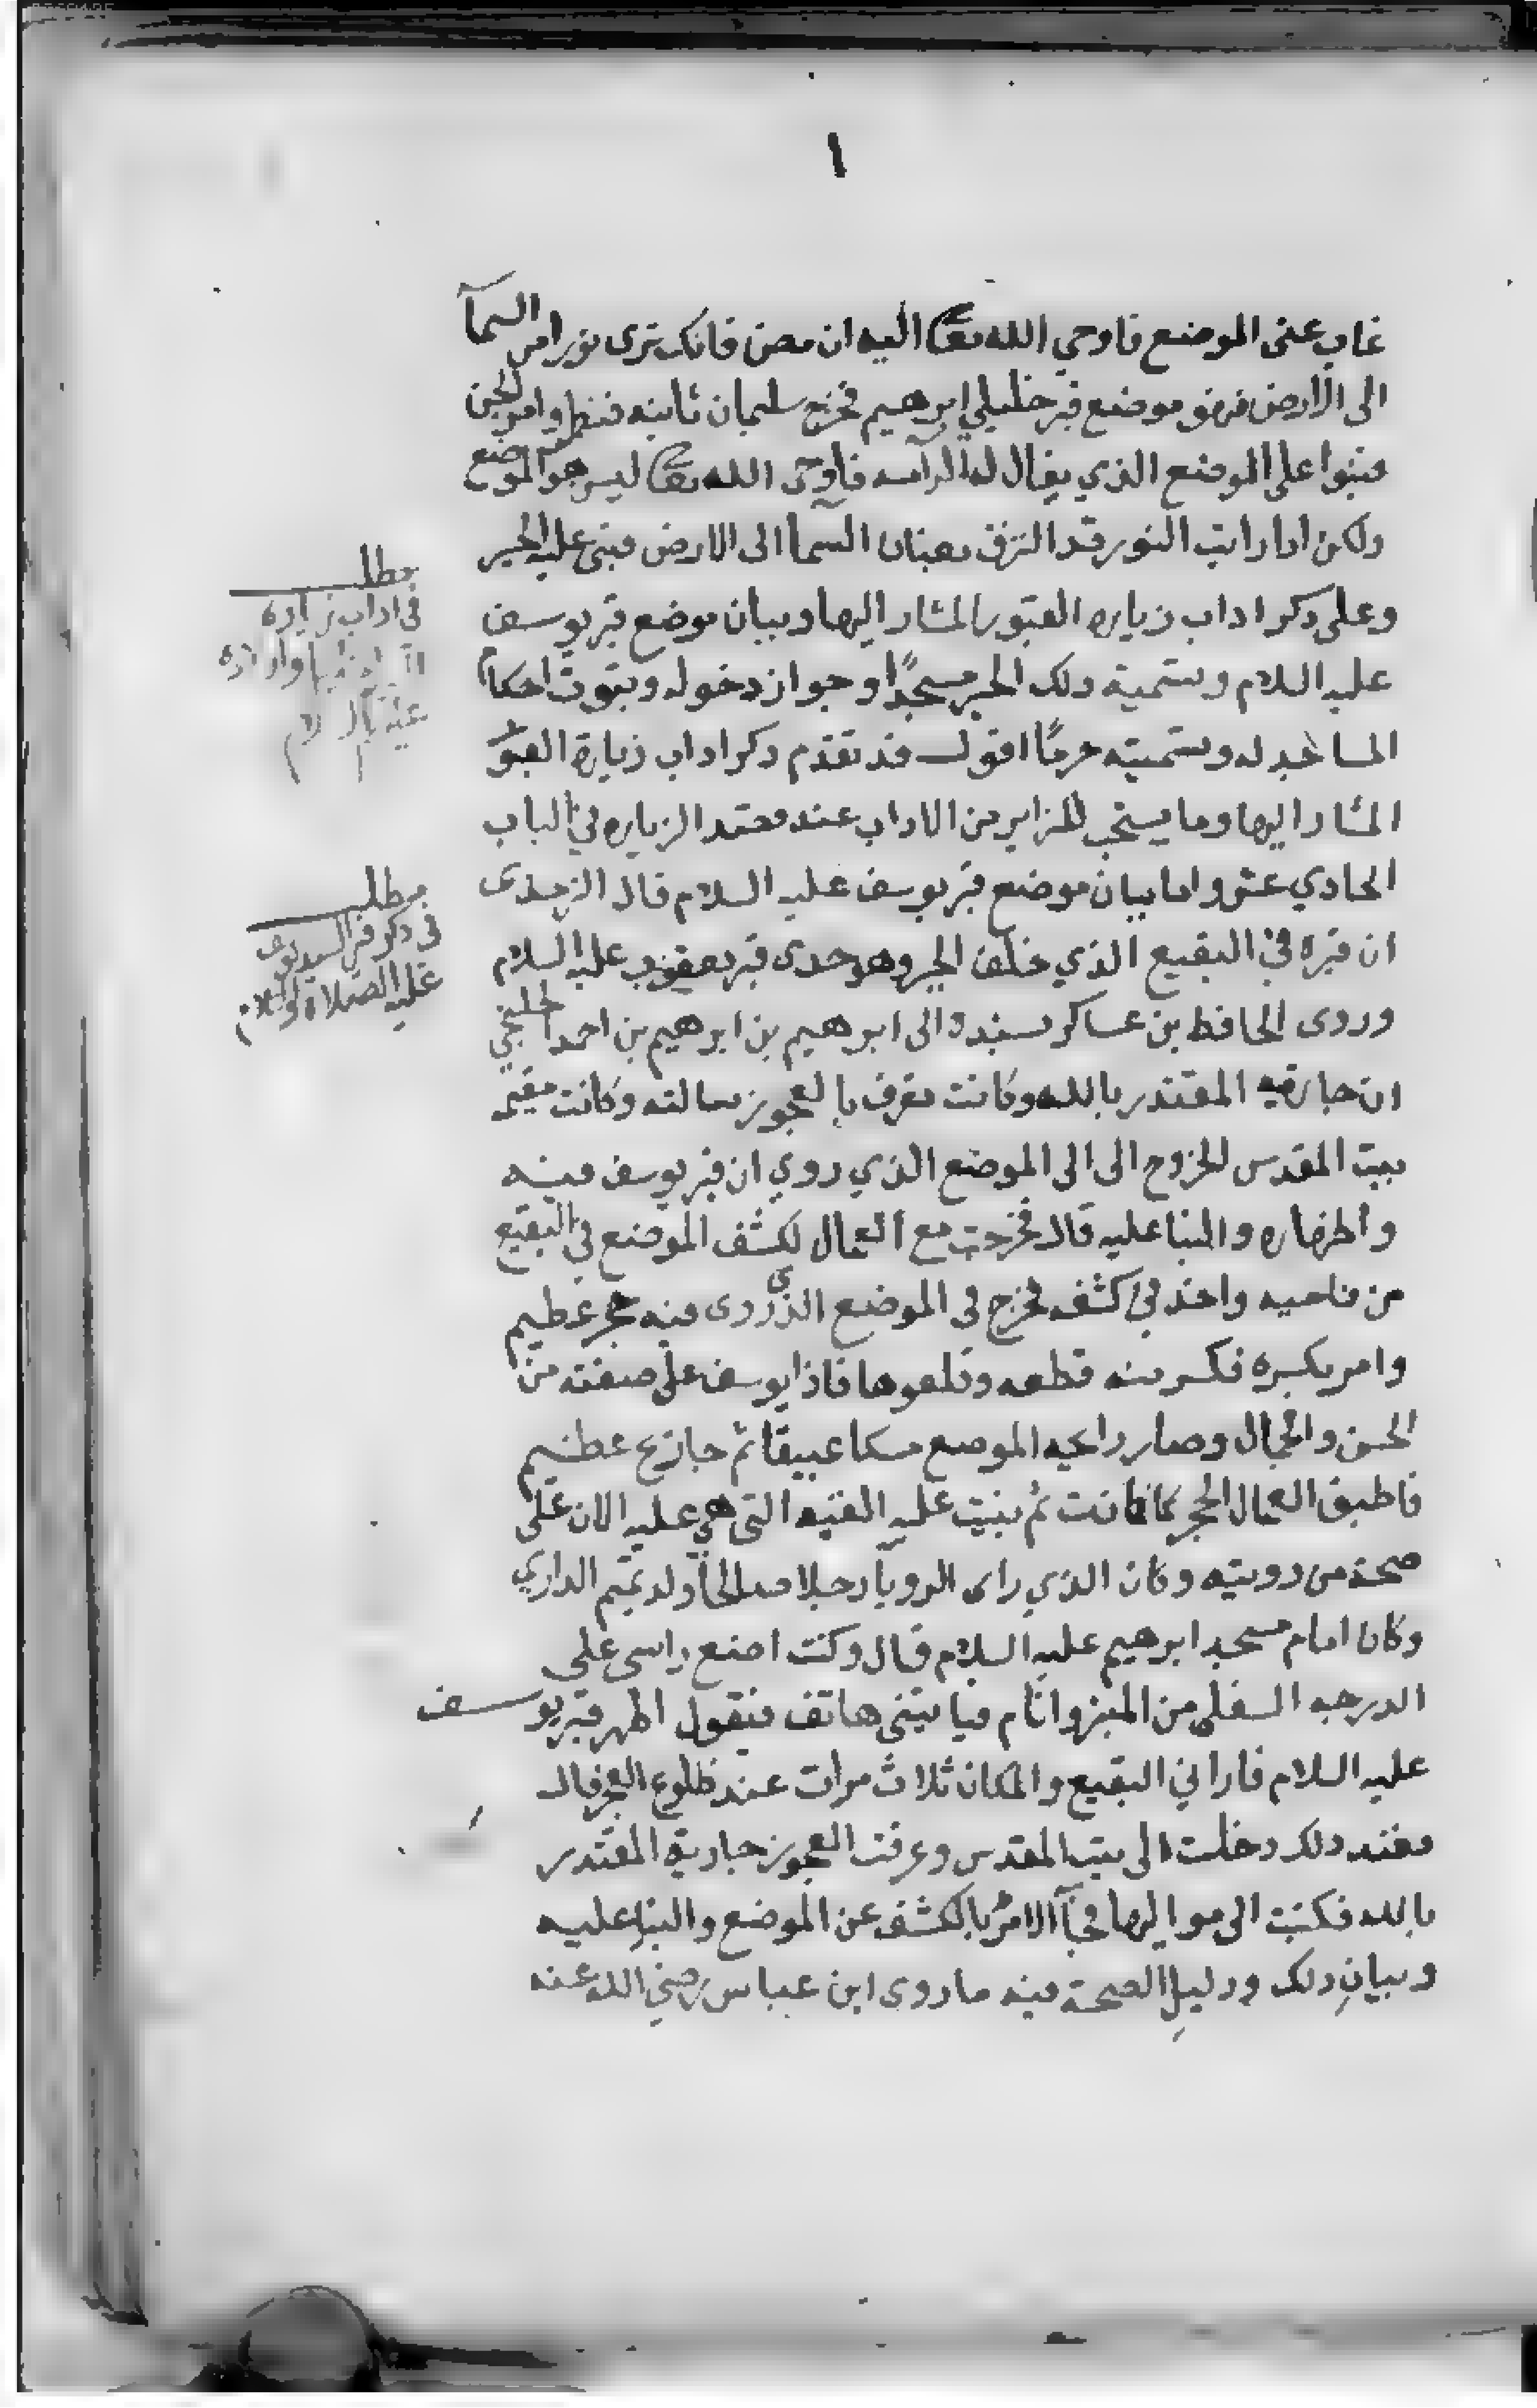 ١
غاب عنى الموضع فاوحي الله تعا اليه ان امض فانك ترى نورا من السمآ
الى الارض فهو موضع قبر خليلي ابرهيم فخرج سليمان ثانيه فنظر وامر الجن
فبنوا على الموضع الذي يقال له الرآمه فاوحى الله تعا ليس هو الموضع
ولكن اذا رايت النور قد التزق بعنان السمآ الى الارض فبنى عليه الحير
وعلى ذكر اداب زياره القبور المشار اليها وبيان موضع قبر يوسف
عليه السلام وتسمية ذلك الحير مسجدًا وجواز دخوله وثبوت احكام
المساجد له وتسميته حرمًا اقول قد تقدم ذكر اداب زيارة القبور
المشار اليها وما يستحب للزاير من الاداب عند قصد الزياره في الباب
الحادي عشر واما بيان موضع قبر يوسف عليه السلام قال الزجدى
ان قبره في البقيع الذي خلف الحير وهو حدى قبر يعقوب عليه السلام
وروى الحافظ بن عساكر بسنده الى ابرهيم بن ابرهيم بن احمد الخلنجي
ان جاريه المقتدر بالله وكانت تعرف بالعجوز سالته وكانت مقيمه
ببيت المقدس للخروج الى الى الموضع الذي روي ان قبر يوسف فيه
واظهاره والبنا عليه قال فخرجت مع العمال لكشف الموضع في البقيع
من ناحيه واخذ في كشفه فخرج في الموضع الذي روى فيه حجر عظيم
وامر بكسره فكسر منه قطعه وقلعوها فاذا يوسف على صفته من
الحسن والجمال وصار رايحه الموضع مسكا عبيقا ثم جا ريح عظيم
فاطبق العمال الحجر كما كانت ثم بنيت عليه القبه التى هي عليه الان على
صحة من رويته وكان الذي راى الرويآ رجلا صالحا ولد تميم الداري
وكان امام مسجد ابرهيم عليه السلام قال وكنت اضع راسى على
الدرجه السفلى من المنبر وانام فياتينى هاتف فيقول اظهر قبر يوسف
عليه السلام فاراني البقيع والمكان ثلاث مرات عند طلوع الفجر قال
فعند ذلك دخلت الى بيت المقدس وعرفت العجوز جارية المقتدر
بالله فكتبت الى مواليها فجآ الامر بالكشف عن الموضع والبنا عليه
وبيان ذلك ودليل الصحة فيه ما روى ابن عباس رضي الله عنه
مطلب
فى اداب زيارة
عليه السلام
مطلب
فى ذكر قبر السيد يوسف
عليه الصلاة والسلام